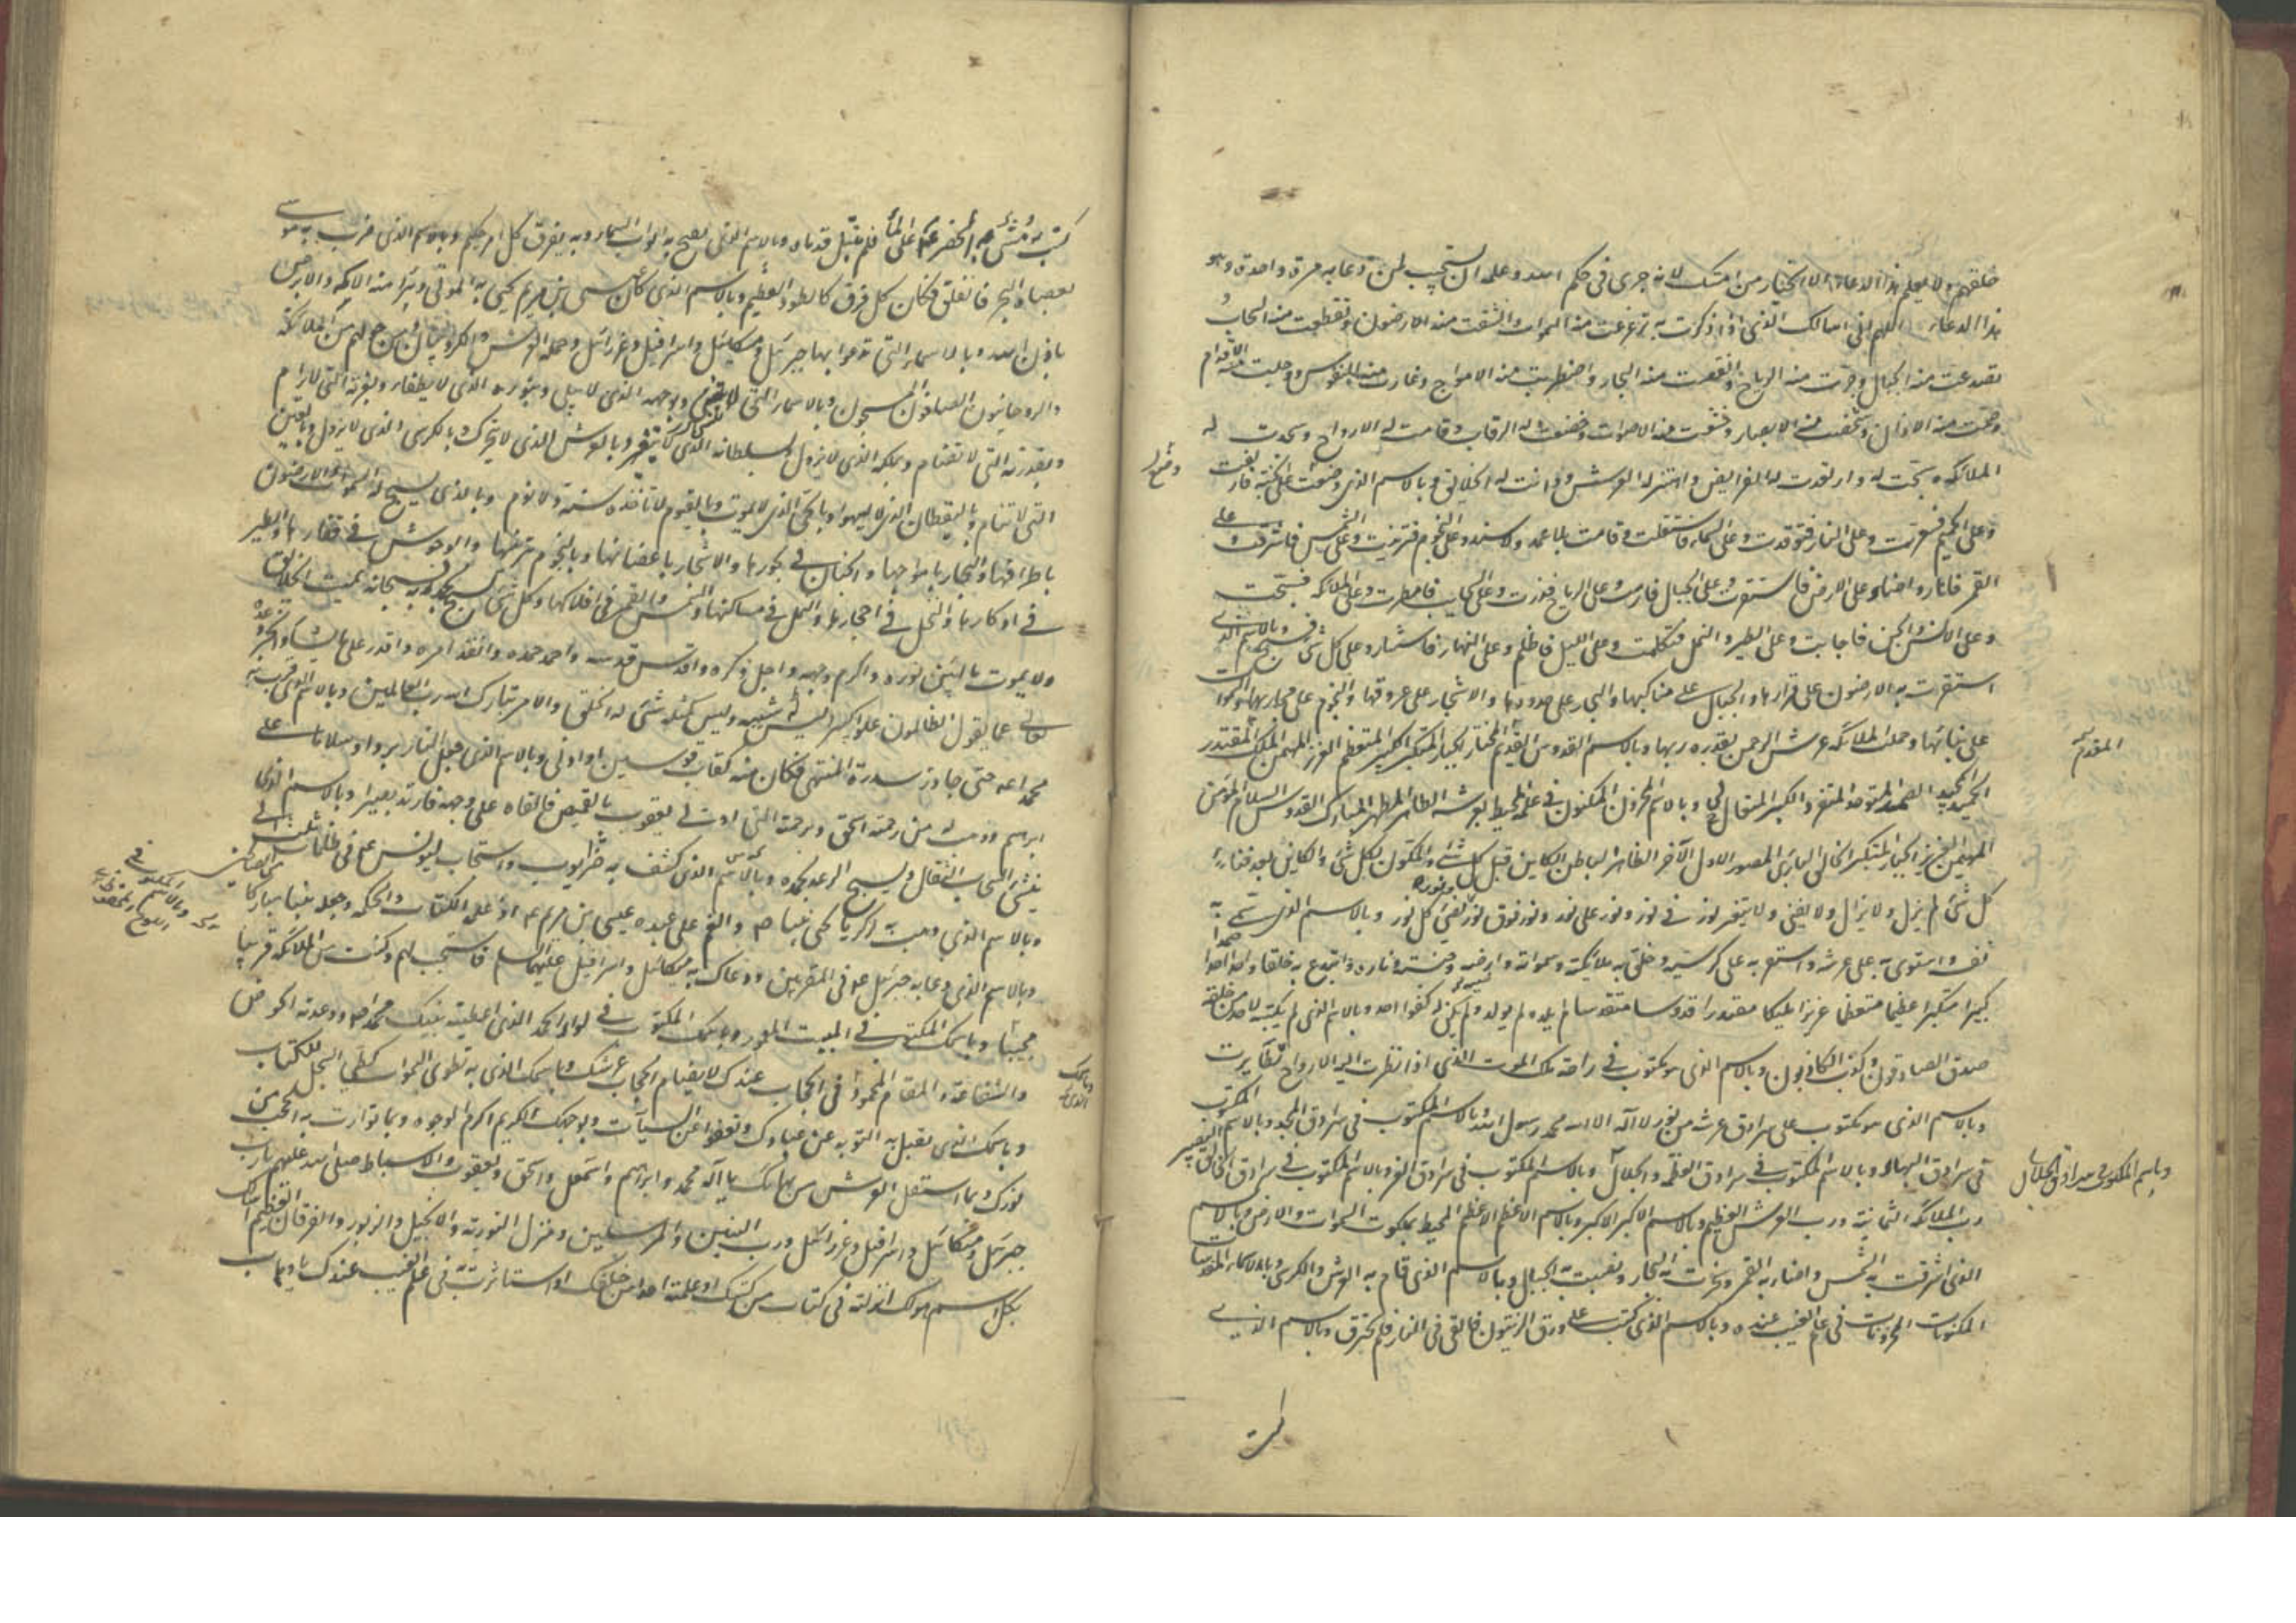 خلقهم ولا يعلم هذا الدعاء الا المختار من امتك لانه جرى فى حكم الله وعلمه ان يستجيب لمن دعا به مرة واحدة وهو
هذا الدعاء اللهم انى اسالك الذى اذا ذكرت به تزعزعت منه السموات وانشقت منه الارضون وتقطعت منه السحاب
وتصدعت منه الجبال وجرت منه الرياح وانتقصت منه البحار واضطربت منه الامواج وغارت منه النفوس ووجلت منه
الاقدام
وصمت منه الاذان وشخصت منه الابصار وخشعت منه الاصوات وخضعت له الرقاب وقامت له الارواح وسجدت له
الملائكة وسبحت له وارتعدت له الفرايص واهتز له العرش ودانت له الخلايق وبالاسم الذى وضعت على الجنة فازلفت
وعلى الجحيم فسعرت وعلى النار فتوقدت وعلى السماء فاستقلت وقامت بلا عمد ولا سند وعلى النجوم فتزينت وعلى الشمس فاشرقت وعلى
القمر فانار واضاء وعلى الارض فاستقرت وعلى الجبال فارست وعلى الرياح فذرت وعلى السحاب فامطرت وعلى الملائكة فسبحت
وعلى الانس والجن فاجابت وعلى الطير والنمل فتكلمت وعلى الليل فاظلم وعلى النهار فاستنار وعلى كل شئ فسبح وبالاسم الذى
استقرت به الارضون على قرارها والجبال على مناكبها والبحار على حدودها والاشجار على عروقها والنجوم على مجاريها والسموات
على بنائها وحملت الملائكة عرش الرحمن بقدرة ربها وبالاسم القدوس القديم المختار الجبار المتكبر الكبير المتعظم العزيز المهيمن الملك المقتدر
المقدم
الحميد المجيد الصمد المتوحد المتفرد الكبير المتعال وبالاسم المخزون المكنون فى علمه المحيط بعرشه الطاهر المطهر المبارك القدوس السلام المؤمن
المهيمن العزيز الجبار المتكبر الخالق البارئ المصور الاول الآخر الظاهر الباطن الكاين قبل كل شئ والمكون لكل شئ والكاين بعد فناء
كل شئ لم يزل ولا يزال ولا يفنى ولا يتغير نور فى نور ونور على نور ونور فوق نور ونور يضئ كل نور وبالاسم الذى سمى به
نفسه واستوى به على عرشه واستقر به على كرسيه وخلق به ملائكته وسمواته وارضه وجنته وناره وابتدع به خلقه واحدا احدا صمدا
كبيرا متكبرا عظيما متعظما عزيزا مليكا مقتدرا قدوسا متقدسا لم يلد ولم يولد ولم يكن له كفوا احد وبالاسم الذى لم يكتبه لاحد من خلقه
صدق الصادقون وكذب الكاذبون وبالاسم الذى هو مكتوب فى راحة ملك الموت الذى اذا نظرت اليه الارواح تطايرت
وبالاسم الذى هو مكتوب على سرادق عرشه من نور لا اله الا الله محمد رسول الله وبالاسم المكتوب فى سرادق المجد وبالاسم المكتوب
فى سرادق البهاء وبالاسم المكتوب فى سرادق العظمة والجلال وبالاسم المكتوب فى سرادق العز وبالاسم المكتوب فى سرادق الخالق النصير
وباسم المكتوب فى سرادق الجلال
رب الملائكة الثمانية ورب العرش العظيم وبالاسم الاكبر الاكبر وبالاسم الاعظم الاعظم المحيط بملكوت السموات والارض وبالاسم
الذى اشرقت به الشمس واضاء به القمر وسجرت به البحار ونصبت به الجبال وبالاسم الذى قام به العرش والكرسى وبالاسماء المقدسات
المكنونات المخزونات فى علم الغيب عنده وبالاسم الذى كتب على ورق الزيتون فالقى فى النار فلم يحترق وبالاسم الذى
كتب به ومشى به الخضر على الماء فلم تبتل قدماه وبالاسم الذى تفتح به ابواب السماء وبه يفرق كل امر حكيم وبالاسم الذى ضرب به موسى
بعصاه البحر فانفلق فكان كل فرق كالطود العظيم وبالاسم الذى كان عيسى بن مريم يحيى به الموتى ويبرا منه الاكمه والابرص
باذن الله وبالاسماء التى يدعوا بها جبرئيل وميكائيل واسرافيل وعزرائيل وحملة العرش والكروبيون ومن حولهم من الملائكة
والروحانيون الصافون المسبحون وبالاسماء التى لا تنسى وبوجهه الذى لا يبلى وبنوره الذى لا يطفا وبعزته التى لا ترام
وبقدرته التى لا تضام وبملكه الذى لا يزول وبسلطانه الذى لا يتغير وبالعرش الذى لا يتحرك وبالكرسى الذى لا يزول وبالعين
التى لا تنام وباليقظان الذى لا يسهوا وبالحى الذى لا يموت وبالقيوم لا تاخذه سنة ولا نوم وبالذى يسبح له السموات والارضون
باطرافها والبحار بامواجها والحيتان فى بحورها والاشجار باغصانها والنجوم بزينتها والوحوش فى قفارها والطير
فى اوكارها والنحل فى احجارها والنمل فى مساكنها والشمس والقمر فى افلاكها وكل شئ يسبح بحمد ربه فسبحانه يميت الخلايق
ولا يموت ما ابين نوره واكرم وجهه واجل ذكره واقدس قدسه واحمد حمده وانفذ امره واقدر على ما يشاء وانجز وعده
تعالى عما يقول الظالمون علوا كبيرا ليس له شبيه وليس كمثله شئ له الخلق والامر تبارك الله رب العالمين وبالاسم الذى قرب به
محمدا حتى جاوز سدرة المنتهى فكان منه كقاب قوسين او ادنى وبالاسم الذى جعل النار بردا وسلاما على
ابراهيم ووهب له من رحمته اسحق وبرحمته التى اوتى يعقوب بالقميص فالقاه على وجهه فارتد بصيرا وبالاسم الذى
ينشئ السحاب الثقال ويسبح الرعد بحمده وبالاسم الذى كشف به ضر ايوب واستجاب ليونس فى ظلمات ثلث
وبالاسم الذى وهب لزكريا يحيى نبيا وانعم على عبده عيسى بن مريم اذ علمه الكتاب والحكمة وجعله نبيا مباركا
من الصالحين
وبالاسم الذى دعا به جبرئيل فى المقربين ودعاك به ميكائيل واسرافيل عليهما السلم فاستجبت لهم وكنت من الملائكة قريبا
مجيبا وباسمك المكتوب فى البيت المعمور وباسمك المكتوب فى لواء الحمد الذى اعطيته نبيك محمدا ووعدته الحوض
والشفاعة والمقام المحمود فى الحجاب عندك لا يضام الحجاب عرشك وباسمك الذى به تطوى السموات كطى السجل للكتاب
وباسمك الذى
وباسمك الذى تقبل به التوبة عن عبادك وتعفوا عن السيآت وبوجهك الكريم اكرم الوجوه وبما توارت به الحجب من
نورك وبما استقل العرش من بهائك يا اله محمد وابراهيم واسمعيل واسحق ويعقوب والاسباط صلى الله عليهم يا رب
جبرئيل وميكائيل واسرافيل وعزرائيل ورب النبيين والمرسلين ومنزل التورية والانجيل والزبور والفرقان العظيم اسئلك
بكل اسم هو لك انزلته فى كتاب من كتبك او علمته احدا من خلقك او استاثرت به فى علم الغيب عندك يا وهاب